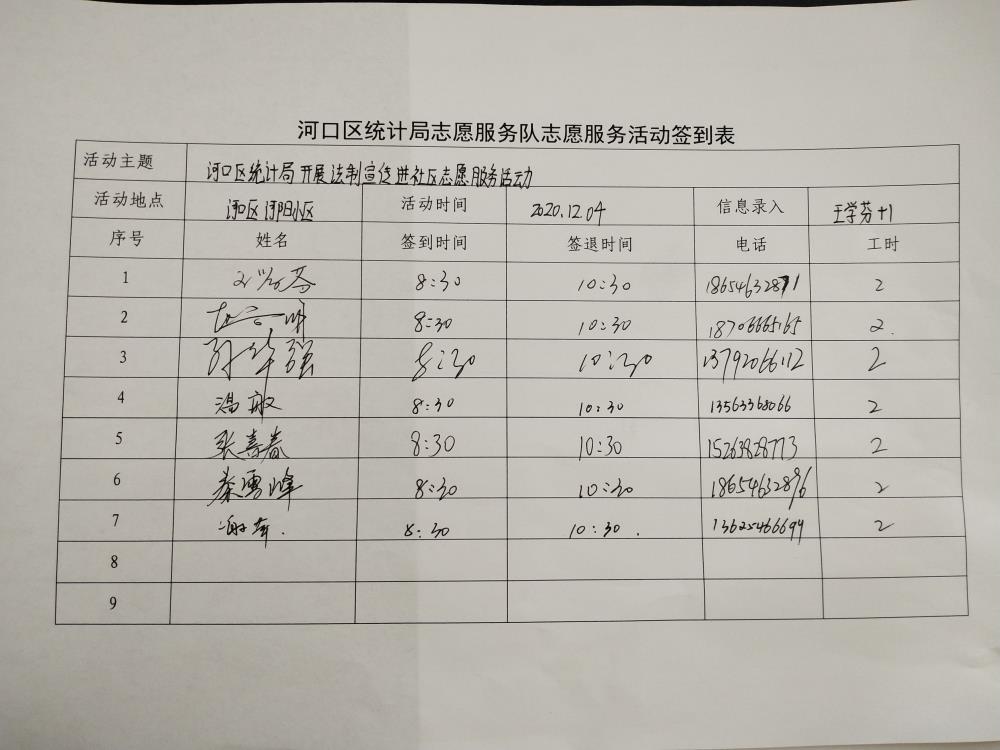 河口区统计局志愿服务队志愿服务活动签到表
活动主题 河口区统计局开展法制宣传进社区志愿服务活动
活动地点 河口区河阳小区 活动时间 2020.12.04 信息录入 王学芬+1
序号 姓名 签到时间 签退时间 电话 工时
1 8:30 10:30 2
2 8:30 10:30 18706665165 2.
3 孙华强 8:30 10:30 13792066112 2
4 温敏 8:30 10:30 13563368066 2
5 张喜春 8:30 10:30 15263828773 2
6 秦雪峰 8:30 10:30 18654632896 2
7 8:30 10:30. 13625466694 2
8
9